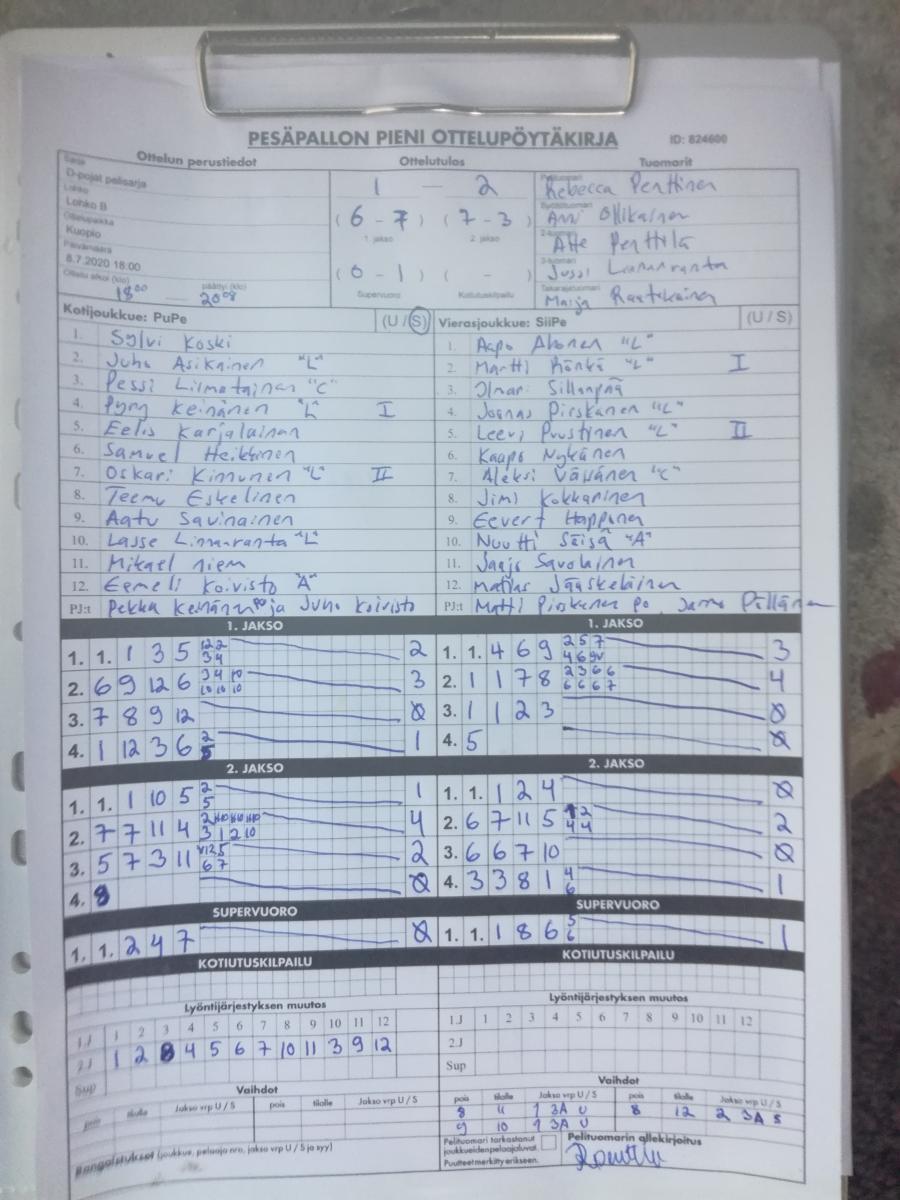 PESÄPALLON PIENI OTTELUPÖYTÄKIRJA ID: 824600
Ottelun perustiedot Ottelutulos Tuomarit
Sarja
D-pojat pelisarja
Lohko
Lohko B
Ottelupaikka
Kuopio
Päivämäärä
8.7.2020 18:00
Ottelu alkoi (klo) päättyi (klo)
1800 — 2008
1 — 2
(6 - 7) (7 - 3)
1. jakso 2. jakso
(0 - 1) ( - )
Supervuoro Kotiutuskilpailu
Pelituomari
Rebecca Penttinen
Syöttötuomari
Anni Ollikainen
2-tuomari
Atte Penttilä
3-tuomari
Jussi Linnanranta
Takarajatuomari
Maija Raatikainen
Kotijoukkue: PuPe (U / S)
1. Sylvi Koski
2. Juho Asikainen "L"
3. Pessi Liimatainen "C"
4. Pyry Keinänen "L" I
5. Eelis Karjalainen
6. Samuel Heikkinen
7. Oskari Kinnunen "L" II
8. Teemu Eskelinen
9. Aatu Savinainen
10. Lasse Linnanranta "L"
11. Mikael niem
12. Eemeli Koivisto "A"
PJ:t Pekka Keinänen PO ja Juho Koivisto
Vierasjoukkue: SiiPe (U / S)
1. Aapo Ahonen "L"
2. Martti Rönkä "L" I
3. Ilmari Sillanpää
4. Joonas Pirskanen "L"
5. Leevi Puustinen "L" II
6. Kaapo Nykänen
7. Aleksi Väisänen "C"
8. Jimi Kokkarinen
9. Eevert Happonen
10. Nuutti Säisä "A"
11. Jaajo Savolainen
12. Matias Jääskeläinen
PJ:t Matti Pirskanen po, Jarmo Pöllänen
1. JAKSO
1. 1. 1 3 5 12 2 2
3 4
2. 6 9 12 6 3 4 10 3
10 10 10
3. 7 8 9 12 0
4. 1 12 3 6 2 1
5
1. JAKSO
1. 1. 4 6 9 2 5 7 3
4 6 9v
2. 1 1 7 8 2 3 6 6 4
6 6 6 7
3. 1 1 2 3 0
4. 5 0
2. JAKSO
1. 1. 1 10 5 2 1
5
2. 7 7 11 4 4
3 1 2 10
3. 5 7 3 11 2
6 7
4. 8 0
2. JAKSO
1. 1. 1 2 4 0
2. 6 7 11 5 1 2 2
4 4
3. 6 6 7 10 0
4. 3 3 8 1 4 1
6
SUPERVUORO
1. 1. 2 4 7 0
SUPERVUORO
1. 1. 1 8 6 5 1
6
KOTIUTUSKILPAILU
KOTIUTUSKILPAILU
Lyöntijärjestyksen muutos
1.J 1 2 3 4 5 6 7 8 9 10 11 12
2.J 1 2 8 4 5 6 7 10 11 3 9 12
Sup
Lyöntijärjestyksen muutos
1.J 1 2 3 4 5 6 7 8 9 10 11 12
2.J
Sup
Vaihdot
pois tilalle Jakso vrp U / S pois tilalle Jakso vrp U / S
Vaihdot
pois tilalle Jakso vrp U / S pois tilalle Jakso vrp U / S
8 11 1 3A U 8 12 2 3A S
9 10 1 3A U
Rangaistukset (joukkue, pelaaja nro, jakso vrp U / S ja syy)
Pelituomari tarkastanut
joukkueiden pelaajaluvat.
Puutteet merkitty erikseen.
Pelituomarin allekirjoitus